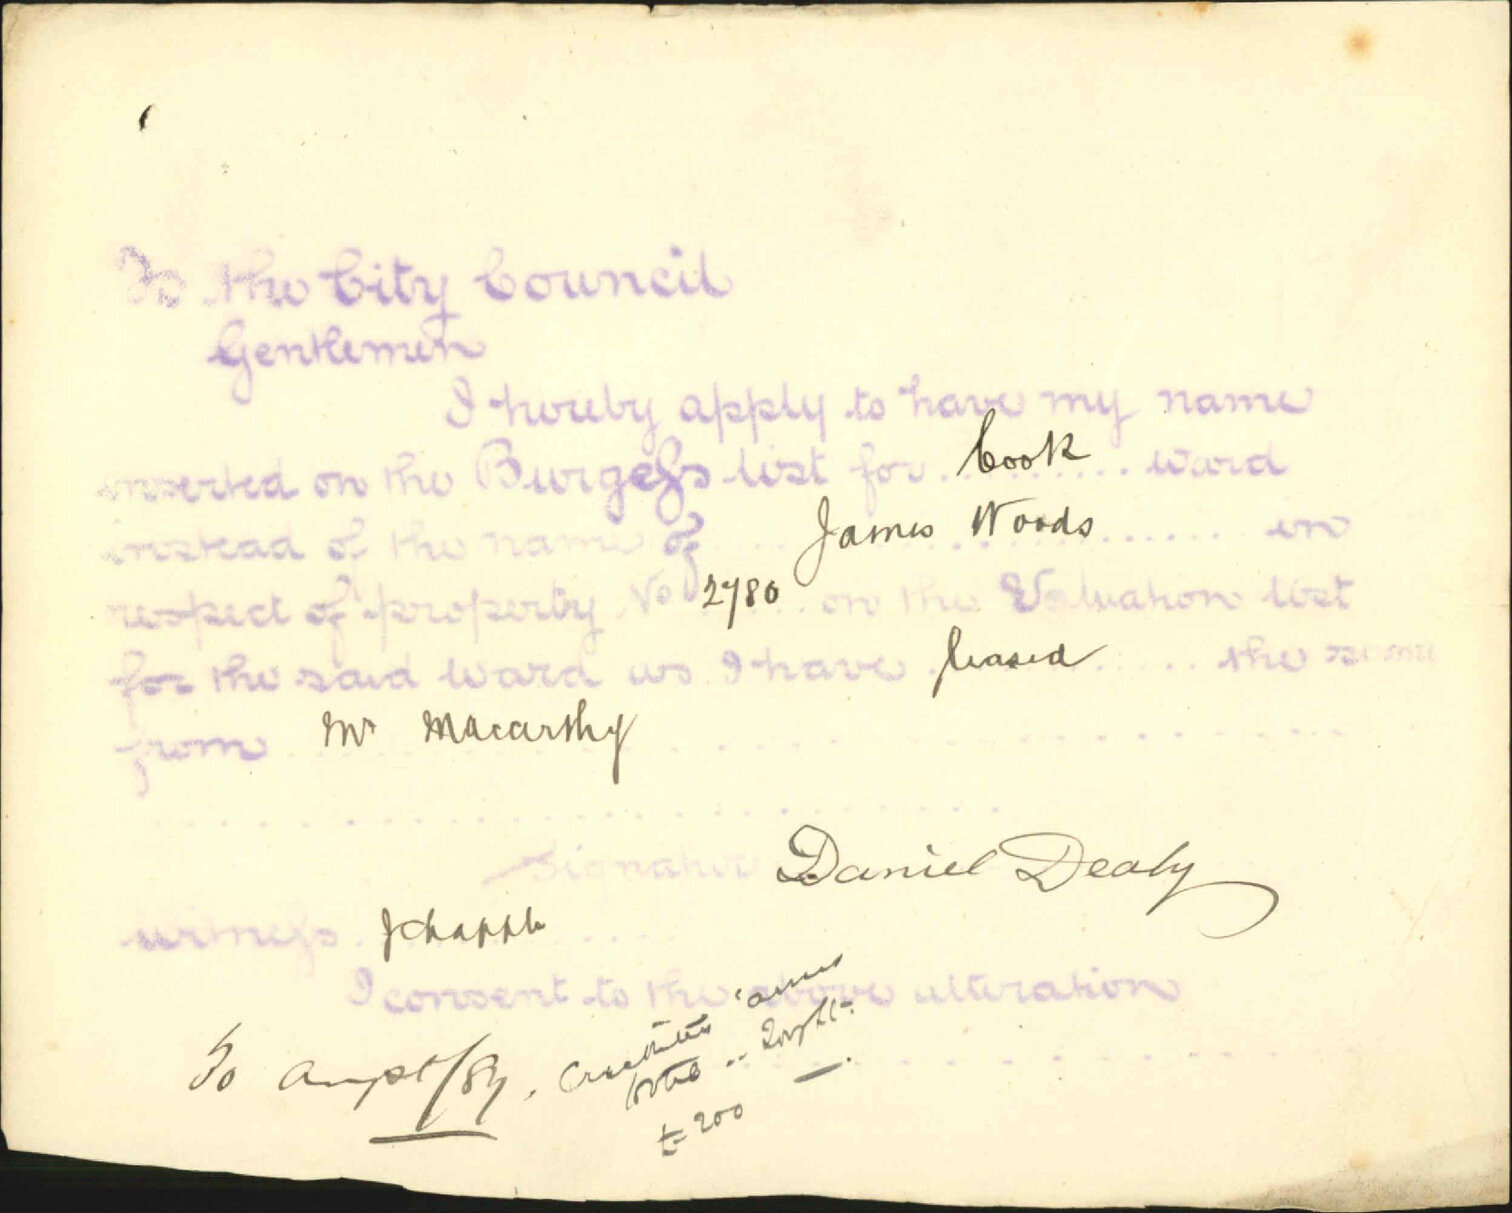 To the City Council
Gentlemen
I hereby apply to have my name
inserted on the Burgess list for Cook ward
instead of the name of James Woods in
respect of property No 2780 on the Valuation list
for the said Ward as I have leased the same
from Mr Macarthy
Signature Daniel Dealy
witness J Chapple
I consent to the above alteration
To
200